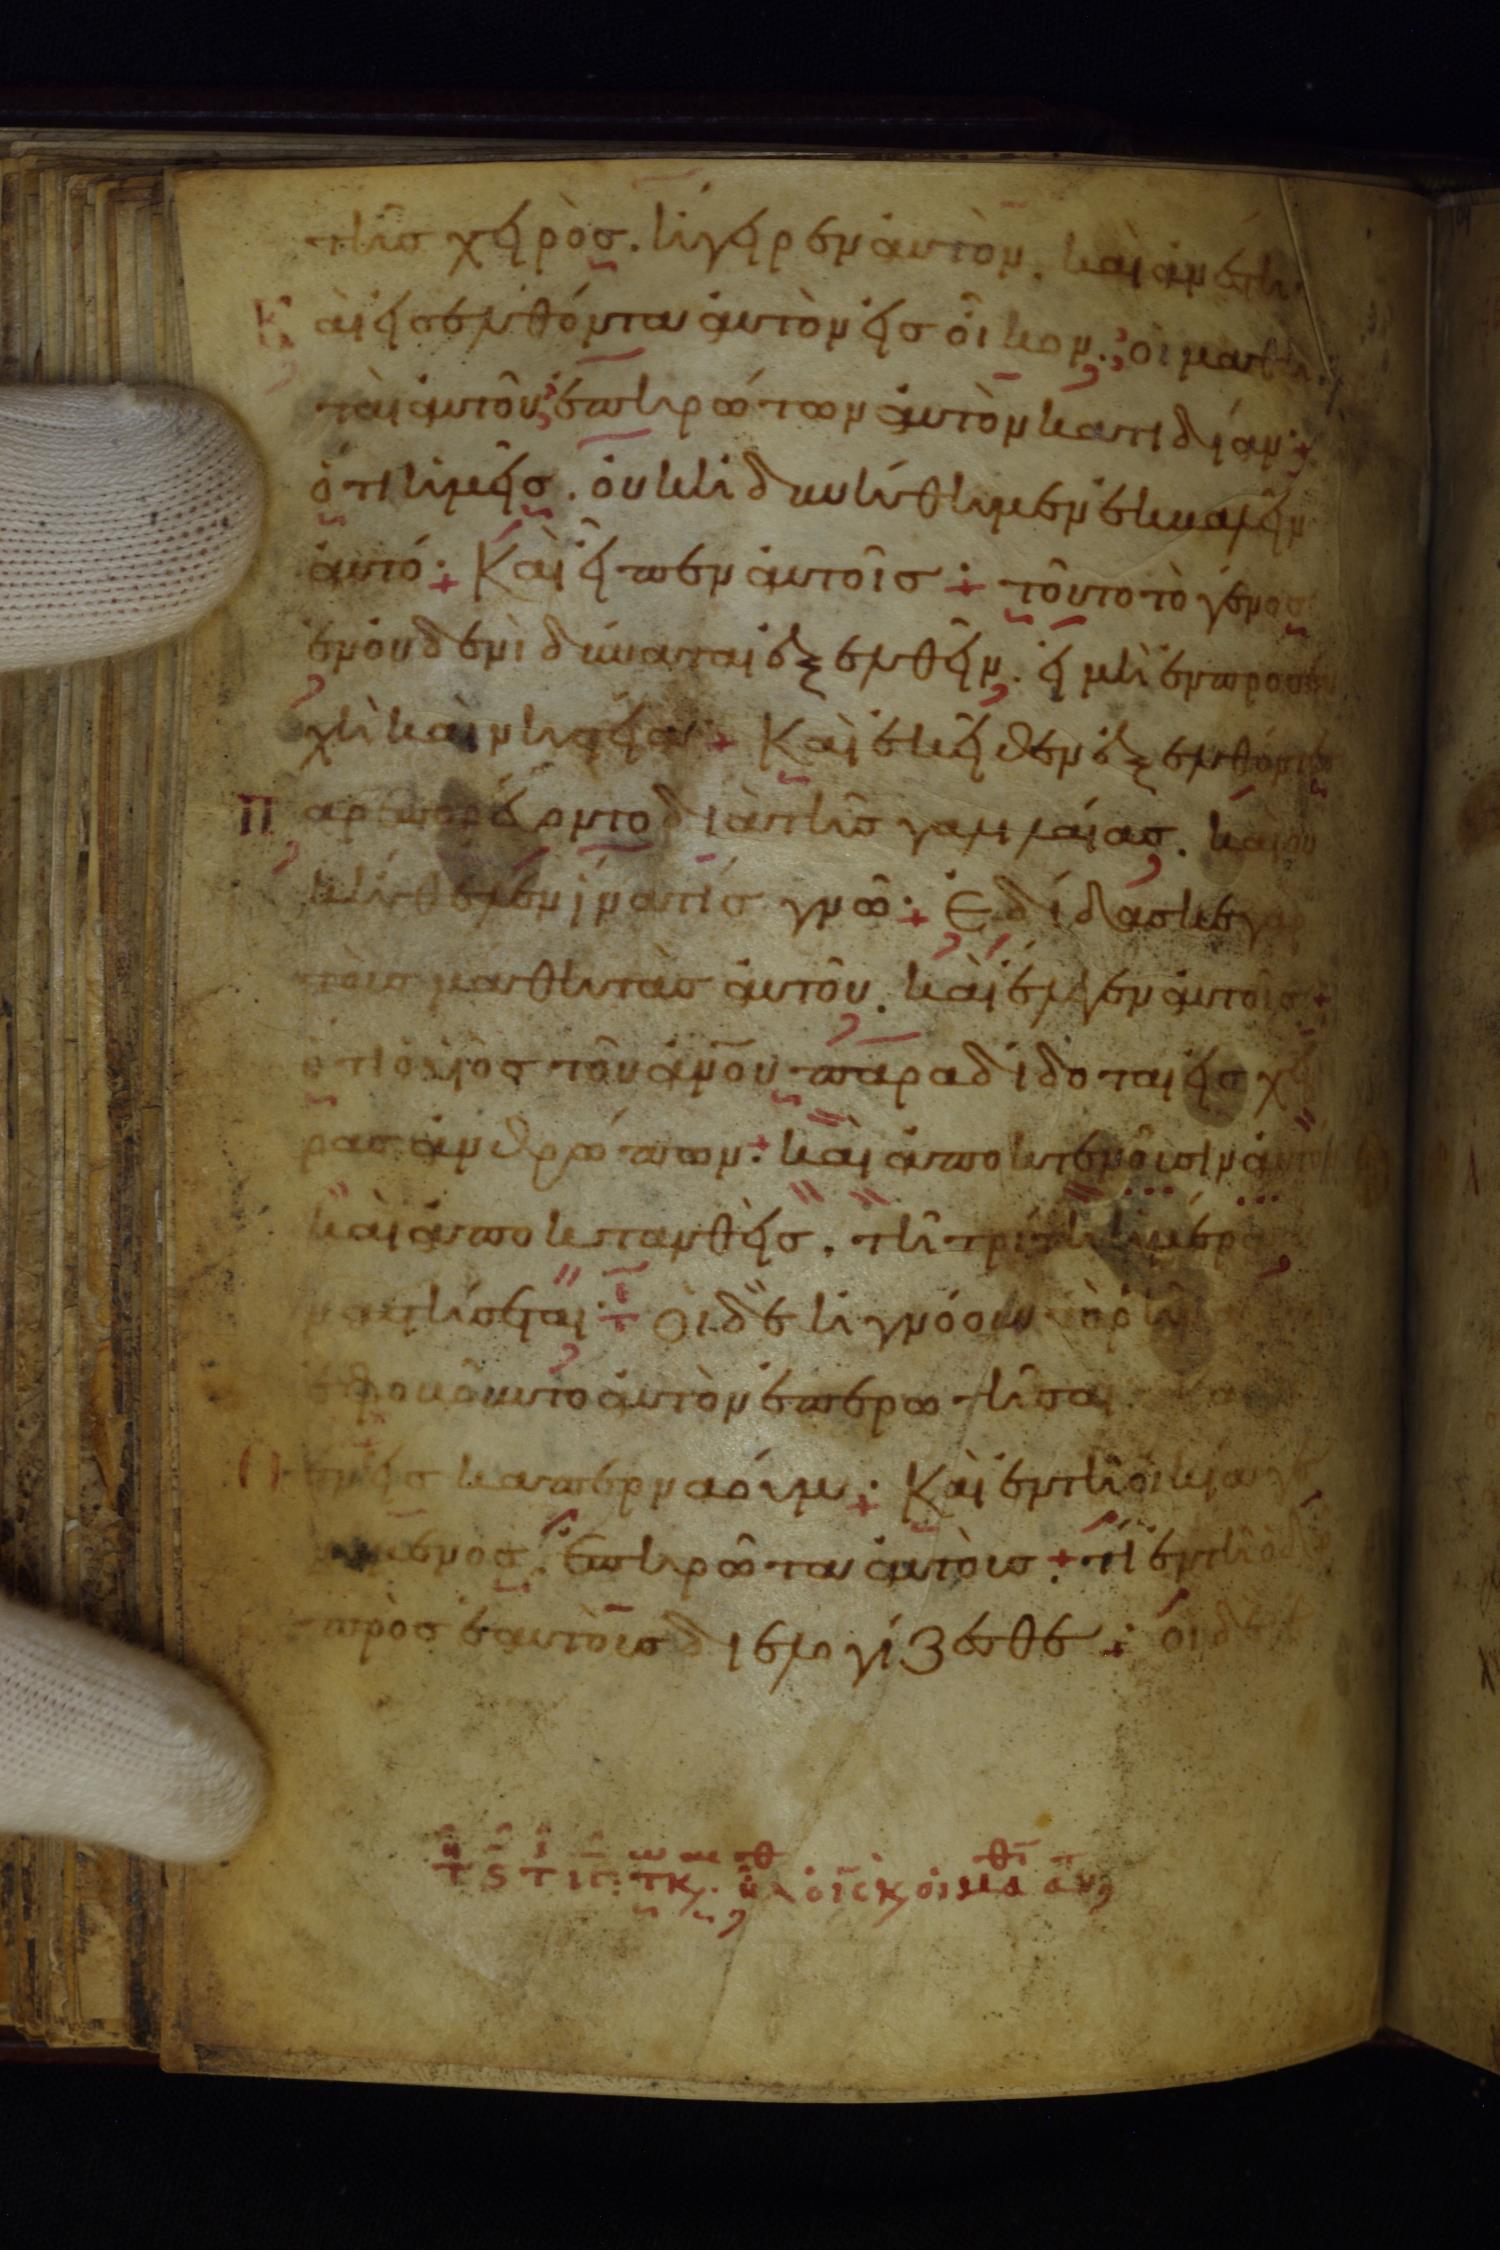 τῆς χειρὸς. ἤγειρεν ἀυτὸν. καὶ ἀνέστη
Καὶ εἰσελθόντα ἀυτὸν εἰς οἶκον. οἱ μαθη
ταὶ ἀυτοῦ ἐπηρώτων ἀυτὸν κατιδίαν
ὅτι ἡμεῖς. οὐκ ἠδυνήθημεν ἐκβαλεῖν
ἀυτό: Καὶ εἶπεν ἀυτοῖς: τοῦτο τὸ γένος
ἐν οὐδενὶ δύναται ἐξελθεῖν. εἰ μὴ ἐν προσευ
χῆ καὶ νηστεία: Καὶ ἐκεῖθεν ἐξελθόντες
Παρεπορέυοντο διὰ τῆς γαλιλαίας. καὶ οὐ
ἤθελεν ἵνα τίς γνῶ: Ἐδίδασκε γὰρ
τοὺς μαθητὰς ἀυτοῦ. καὶ ἔλεγεν ἀυτοῖς
ὅτι ὁ υἱὸς τοῦ ἀνου παραδίδοται εἰς χεῖ
ρας ἀνθρώπων: καὶ ἀποκτενοῦσιν ἀυτὸν
καὶ ἀποκτανθεὶς. τῆ τρίτη ἡμέρα
ναστήσεται: Οἱ δὲ ἠγνόουν τὸ ῥῆμα
ἐφοβοῦντο ἀυτὸν ἐπερωτῆσαι
εἰς καπερναούμ: Καὶ ἐν τῆ οἰκία γε
νόμενος. ἐπηρώτα ἀυτοὺς: τί ἐν τῆ ὁδῶ
πρὸς ἑαυτοὺς διελογίζεσθε: οἱ δὲ ἐ